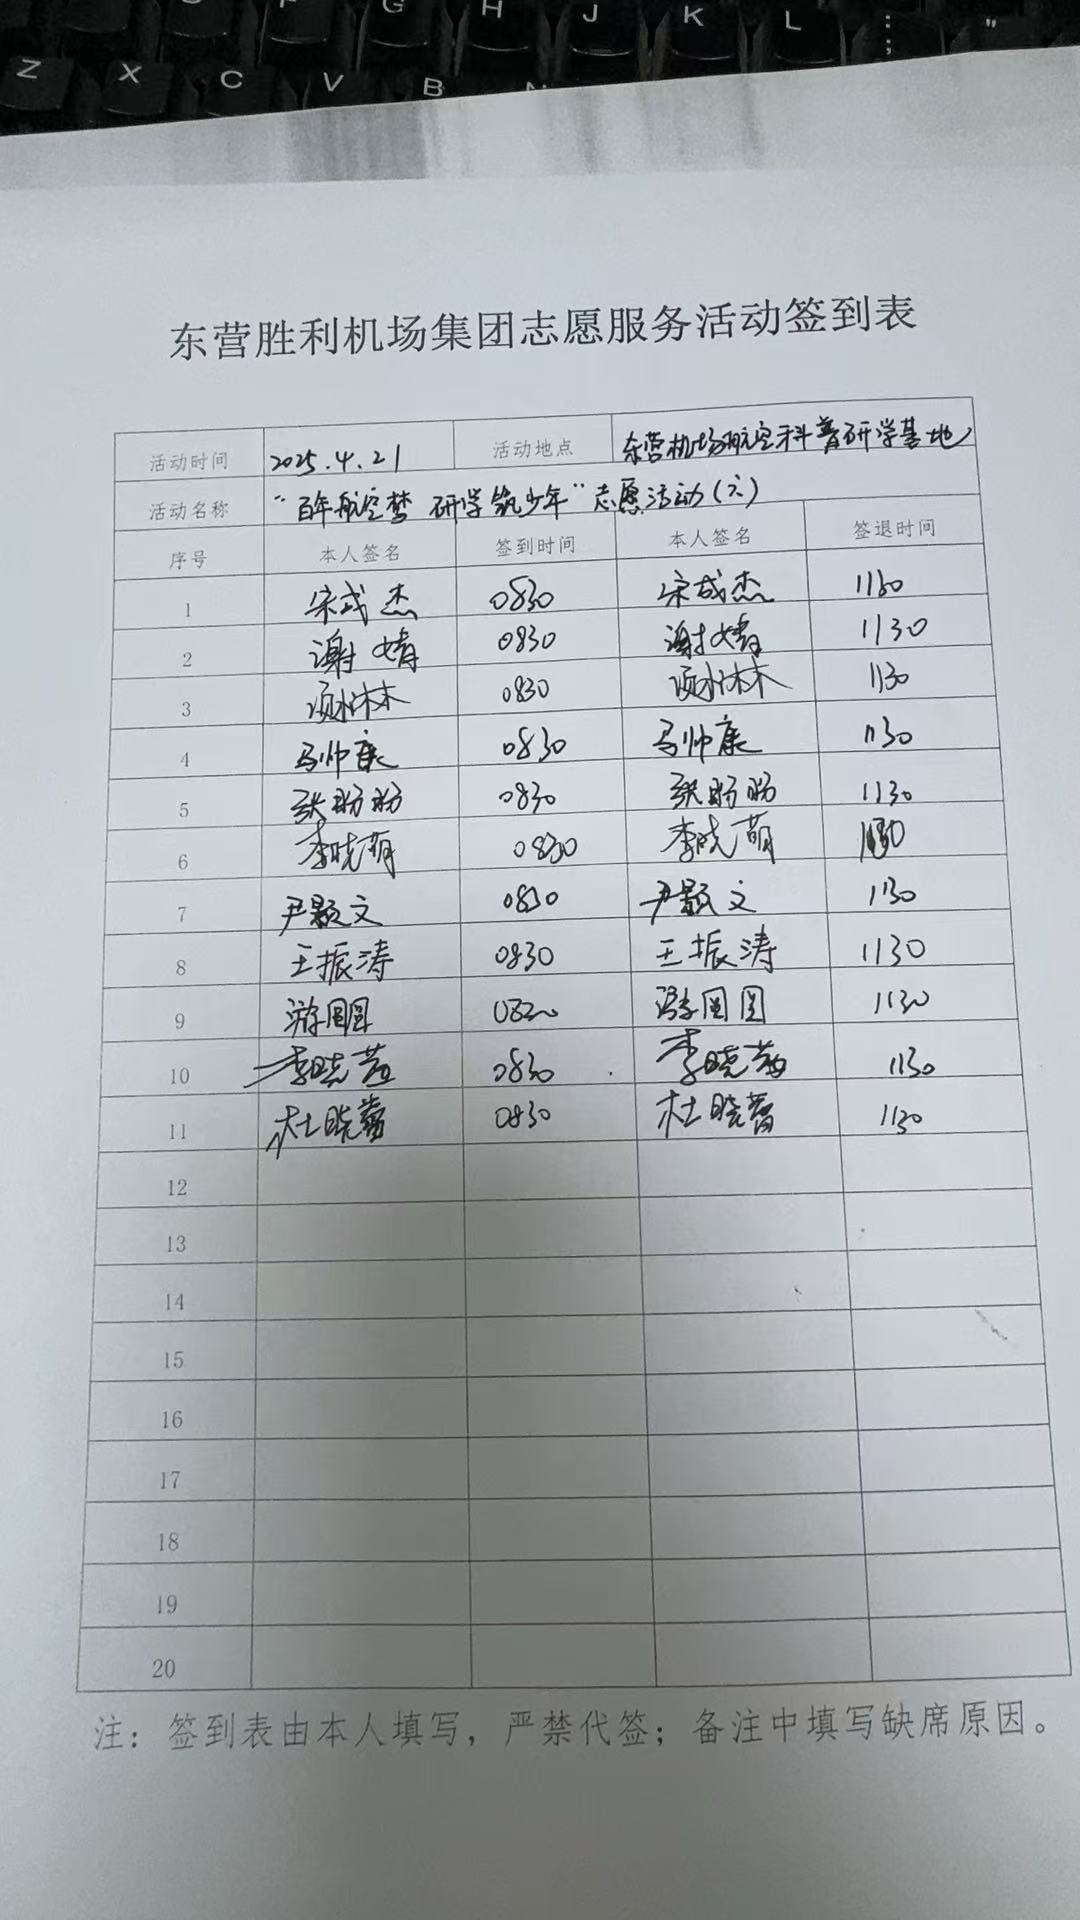 S F G H J K L : ; "
Z X C V B N
东营胜利机场集团志愿服务活动签到表
活动时间 2025.4.21 活动地点 东营机场航空科普研学基地
活动名称 "百年航空梦 研学筑少年"志愿活动(六)
序号 本人签名 签到时间 本人签名 签退时间
1 宋成杰 0830 宋成杰 1130
2 谢婧 0830 谢婧 1130
3 0830 1130
4 马帅康 0830 马帅康 1130
5 张盼盼 0830 张盼盼 1130
6 李晓萌 0830 李晓萌 1130
7 尹颢文 0830 尹颢文 1130
8 王振涛 0830 王振涛 1130
9 游圆圆 0830 游圆圆 1130
10 李晓茜 0830 李晓茜 1130
11 杜晓蕾 0830 杜晓蕾 1130
12
13
14
15
16
17
18
19
20
注：签到表由本人填写，严禁代签；备注中填写缺席原因。